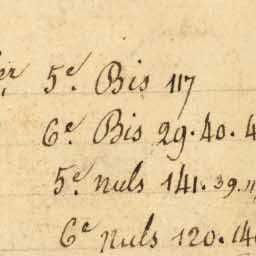 er 5e. Bis 117
6e. Bis 29. 40. 4
5e. nuls 141. 39. 11
6e nuls 120. 14